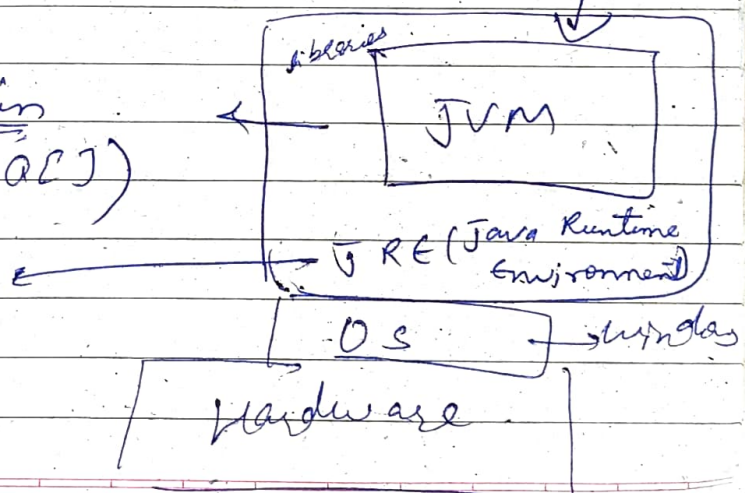 libraries
JVM
a[])
JRE (Java Runtime
Environment)
OS → windows
Hardware